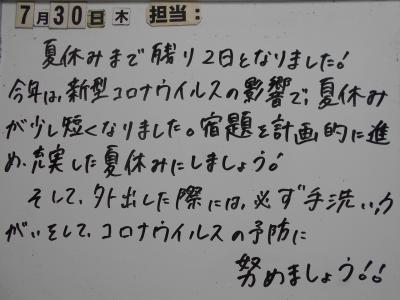 7月30日木 担当：
夏休みまで残り2日となりました!
今年は、新型コロナウイルスの影響で、夏休み
が少し短くなりました。宿題を計画的に進
め、充実した夏休みにしましょう!
そして、外出した際には、必ず手洗い、う
がいをして、コロナウイルスの予防に
努めましょう!!